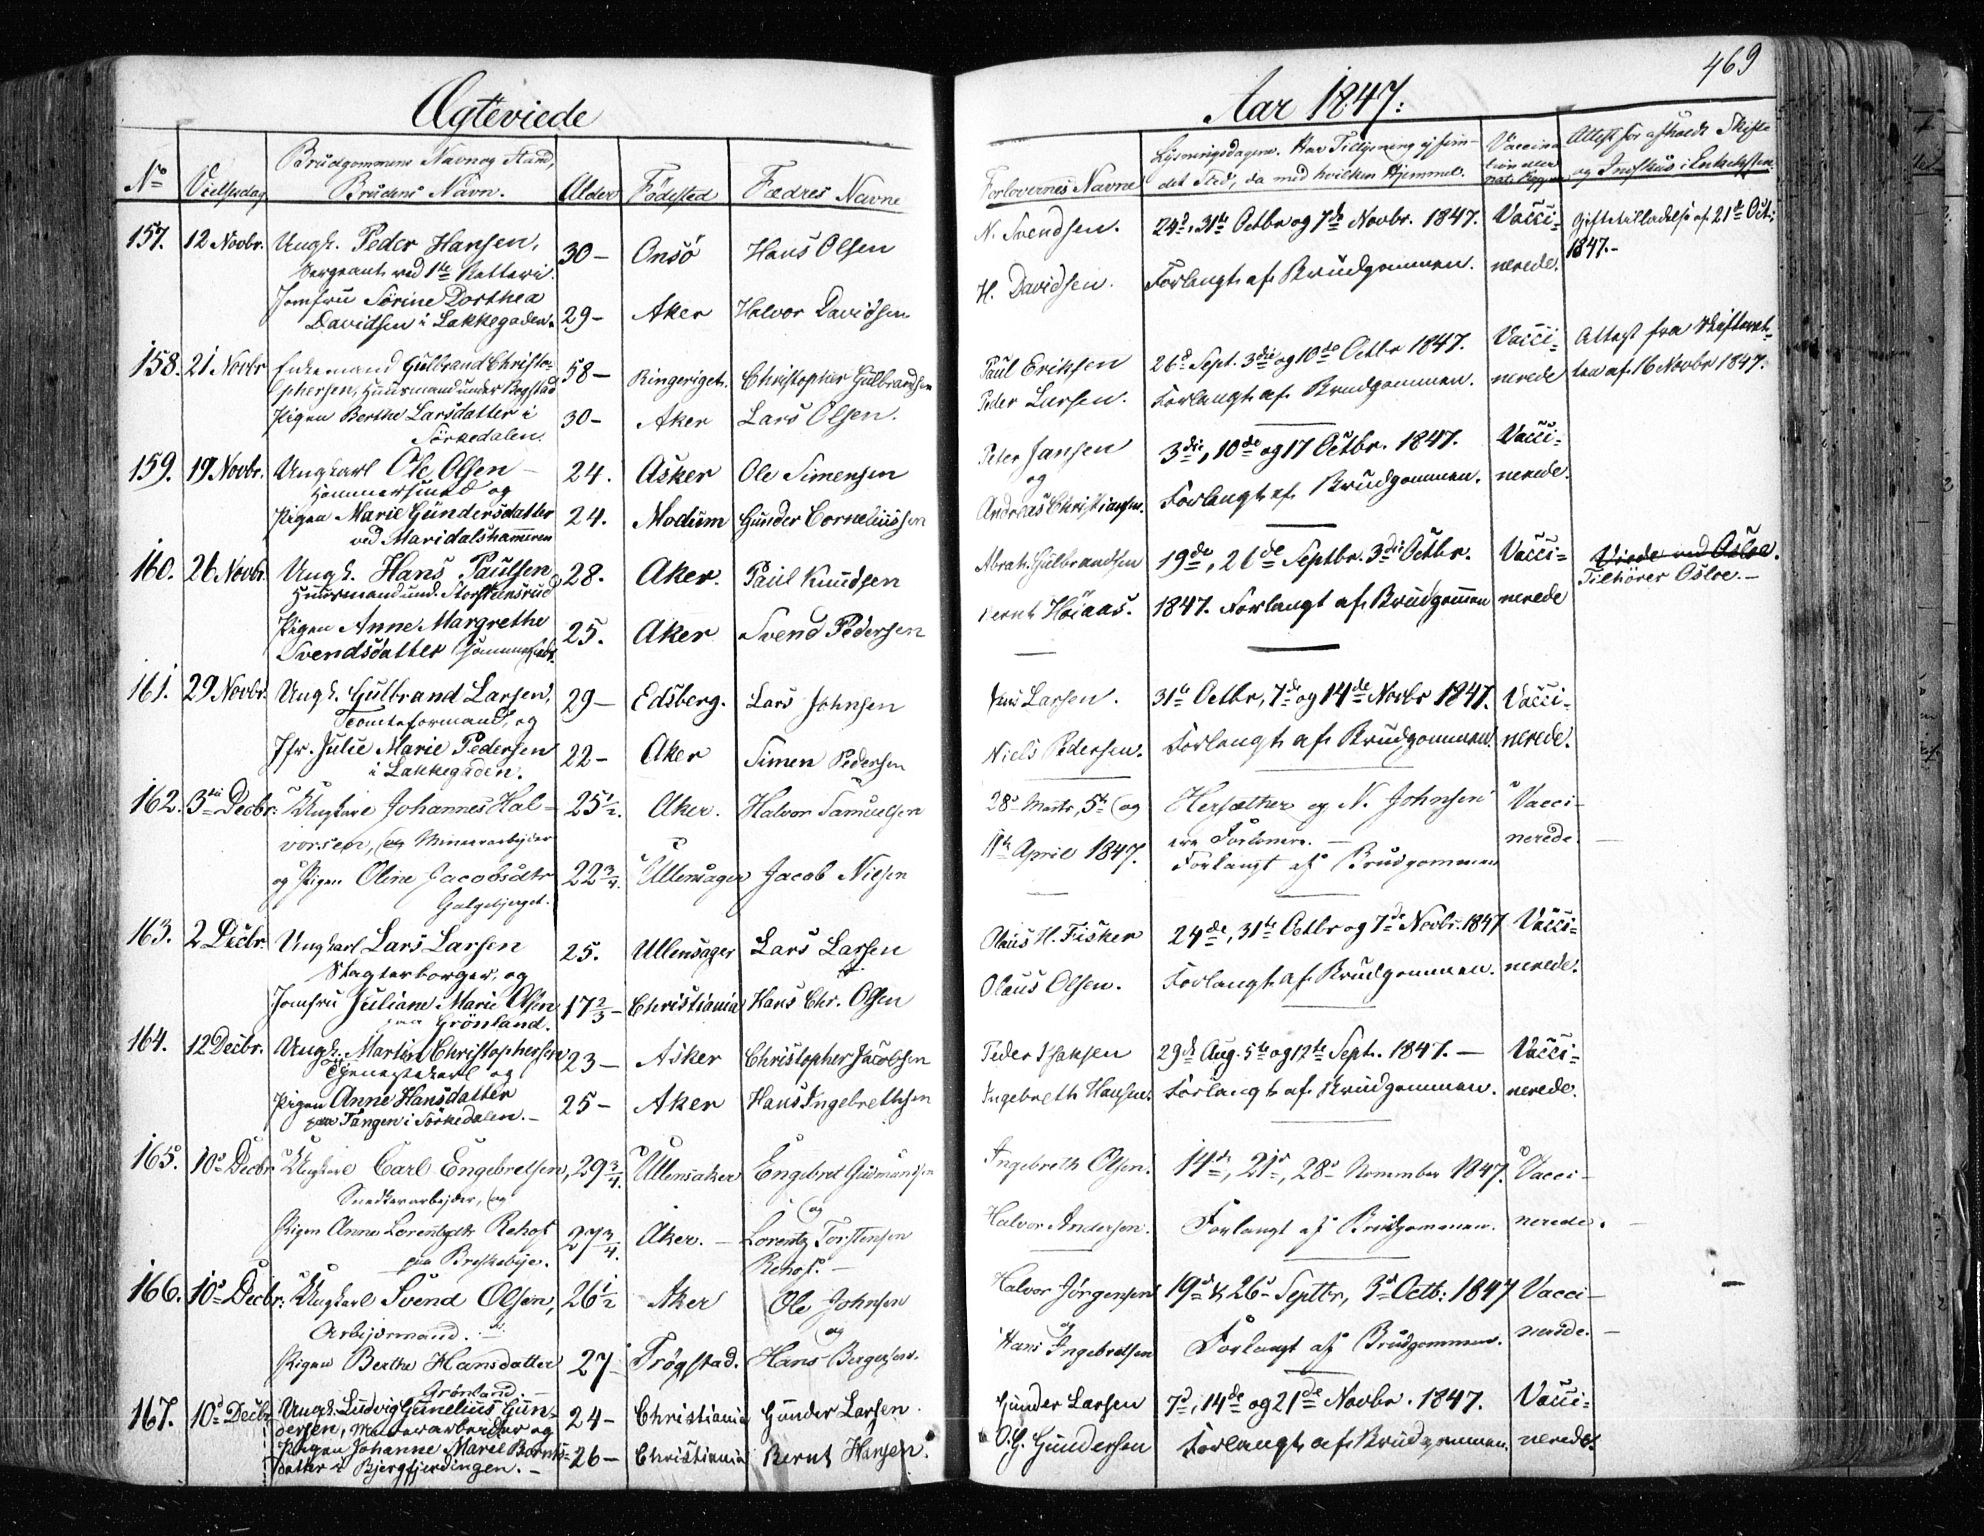 469
Ægteviede
Aar 1847:
No
Vielsesdag
Brudgommens Navn og Stand,
Brudens Navn.
Alder
Fødested
Fædres Navne
Forlovernes Navne
Lysningsdagene. Har Tillysning ej fun-
det Sted, da med hvilken Hjemmel.
Vaccina
Attest for afholdt Skifte
157. 12 Novbr. Ungk. Peder Hansen, 30 — Onsö Hans Olsen N. Svendsen. 24d, 31te Octbr og 7de Novbr. 1847. Vacci- Giftetilladelse af 21de Oct:
Sergeant ved 1te Batteri. H. Davidsen. Forlangt af Brudgommen. nerede. 1847.-
Jomfru Sörine Dorthea 29- Aker Halvor Davidsen
Davidsen i Lakkegaden.
158. 21 Novbr Enkemand Gulbrand Christo- 58 — Ringeriget. Christopher Gulbrandsen Paul Eriksen 26d Sept. 3die og 10de Octbr 1847. Vacci- Attest fra Skifteret-
phersen, Huusmand under Bogstad Peder Larsen. Forlangt af Brudgommen. nerede ten af 16 Novbr 1847.
Pigen Berthe Larsdatter i 30- Aker Lars Olsen.
Sörkedalen.
159. 19 Novbr. Ungkarl Ole Olsen — 24. Asker Ole Simensen Peter Jansen 3die, 10de og 17 Octbr. 1847. Vacci-
Hammersmed og og Forlangt af Brudgommen. nerede.
Pigen Marie Gundersdatter 24. Modum Gunder Corneliussen Andreas Christiansen.
ved Maridalshammeren
160. 26 Novbr. Ungk. Hans Paulsen 28. Aker. Paul Knudsen Abrah. Gulbrandsen 19de, 26de Septbr. 3die Octbr. Vacci- Viede ved Osloe.
Huusmand und. Tilhörer Osloe.—
Bernt Höiaas. 1847. Forlangt af Brudgommen nerede
Pigen Anne Margrethe 25. Aker Svend Pedersen
Svendsdatter
161. 29 Novbr. Ungk. Gulbrand Larsen, 29 — Edsberg. Lars Johnsen Larsen. 31te Octbr, 7de og 14de Novbr 1847. Vacci-
Tomteformand, og Niels Pedersen. Forlangt af Brudgommen. nerede.
Jfr. Julie Marie Pedersen 22 — Aker Simen Pedersen
i Lakkegaden.
162. 3die Decbr: Ungkarl Johannes Hal- 25½. Aker. Halvor Samuelsen 28d Marts, 5te og Hersæther og N. Johnsen Vacci-
vorsen, og Minerarbejder 11te April 1847. ere Forlovere. — nerede. —
og Pigen Oline Jacobsdtr 22¾. Ullensager Jacob Nilsen Forlangt af Brudgommen
Galgebjerget.
163. 2 Decbr. Ungkarl Lars Larsen 25. Ullensager Lars Larsen Olaus H. Fisker 24de, 31te Octbr og 7de Novbr. 1847 Vacci-
Slagterborger, og Olaus Olsen. Forlangt af Brudgommen. nerede.
Jomfru Juliane Marie Olsen 17⅔ — Christiania Hans Chr. Olsen
paa Grönland.
164. 12 Decbr. Ungk. Martin Christophersen 23 — Asker Christopher Jacobsen Peder Isaksen 29de Aug. 5te og 12te Sept. 1847. — Vacci-
Tjenestekarl og Ingebreth Hansen. Forlangt af Brudgommen. nerede.
Pigen Anne Hansdatter 25 — Aker Hans Ingebrethsen
paa Tangen i Sörkedalen. —
165. 10d Decbr. Ungkarl Carl Engebretsen, 29¾. Ullensaker Engebret Gudmundsen Ingebreth Olsen. 14de, 21d, 28d November 1847. Vacci-
Snedkerarbejder, og og Halvor Andersen. Forlangt af Brudgommen. nerede. —
Pigen Anne Lorentzdtr Rehof 27¾. Aker. — Lorentz Torstensen
paa Breskebye. Rehof. —
166. 10d Decbr: Ungkarl Svend Olsen, 26½ Aker Ole Johnsen Halvor Jörgensen 19d & 26d Septbr, 3d Octb: 1847 Vacci- —
Arbejdsmand. og og Forlangt af Brudgommen. nerede. —
Pigen Berthe Hansdatter 27 Trögstad. Hans Bergersen. Hans Ingebretsen
Grönland. —
167. 10d Decbr Ungk. Ludvig Gunelius Gun- 24 — Christiania Gunder Larsen. Gunder Larsen 7d, 14de og 21de Novbr. 1847. Vacci-
dersen, Murerarbeider og O. G. Gundersen Forlangt af Brudgommen. nerede.
Pigen Johanne Marie Bernts- 26 — Christiania Bernt Hansen.
datter i Bjergfjerdingen. —